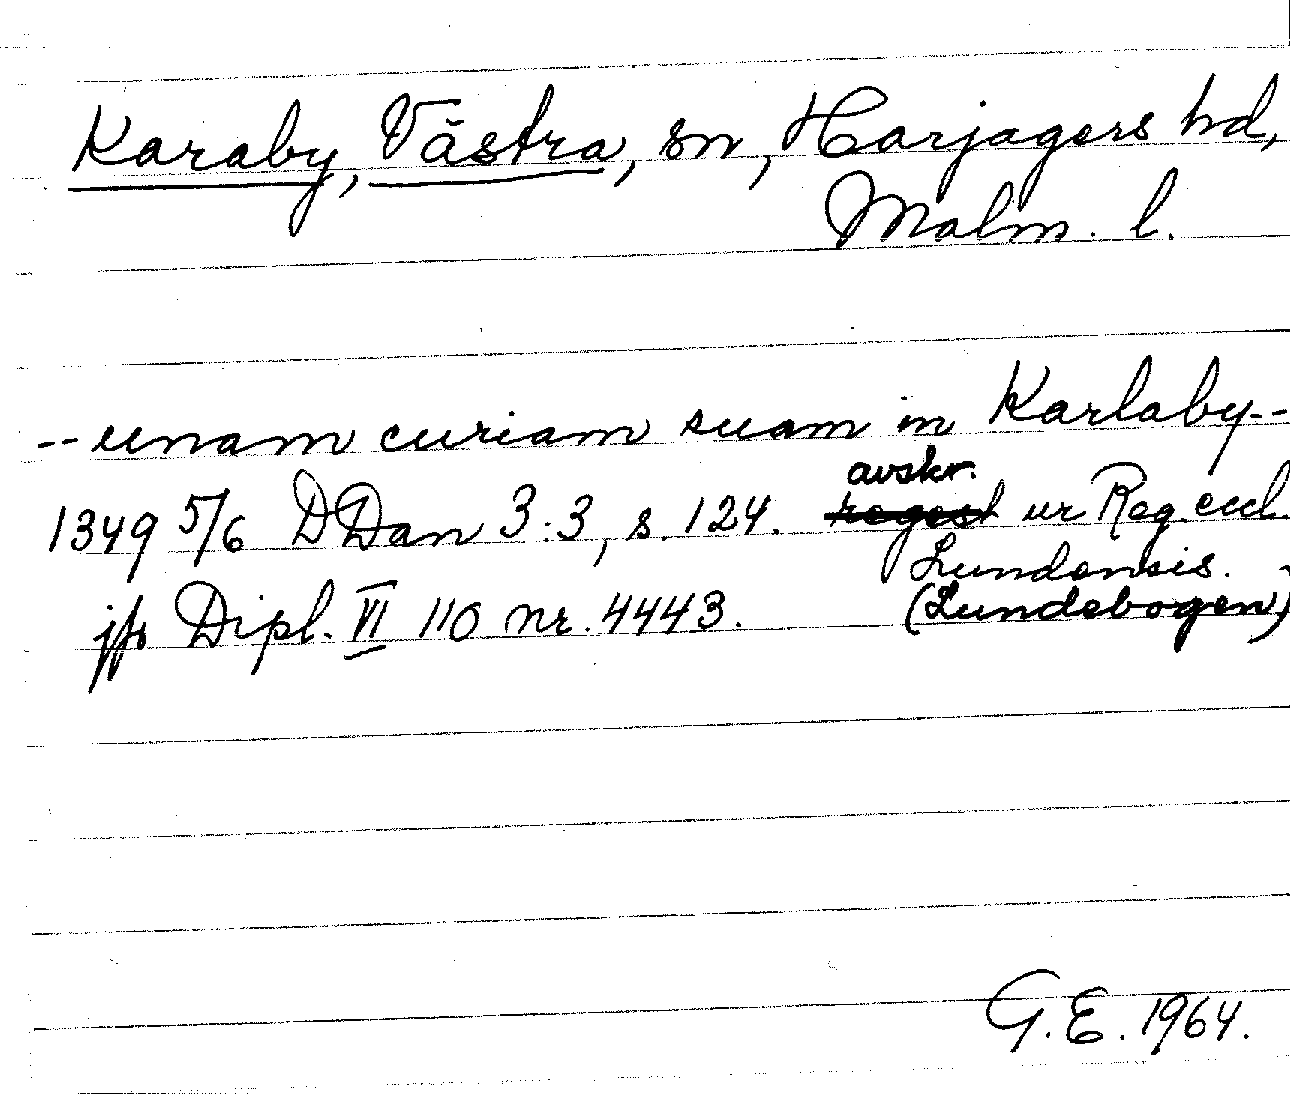 Karaby, Västra, sn, Harjagers hd,
Malm. l.
-- unam curiam suam in Karlaby --
avskr.
1349 5/6 DDan 3:3, s. 124. regest ur Reg. eccl.
Lundensis.
jfr Dipl. VI 110 nr. 4443. (Lundebogen)
G.E. 1964.